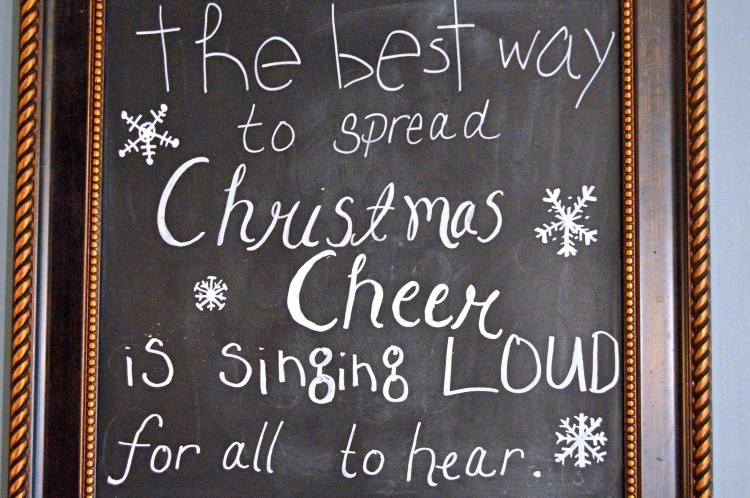 the best way
to spread
Christmas
Cheer
is singing LOUD
for all to hear.